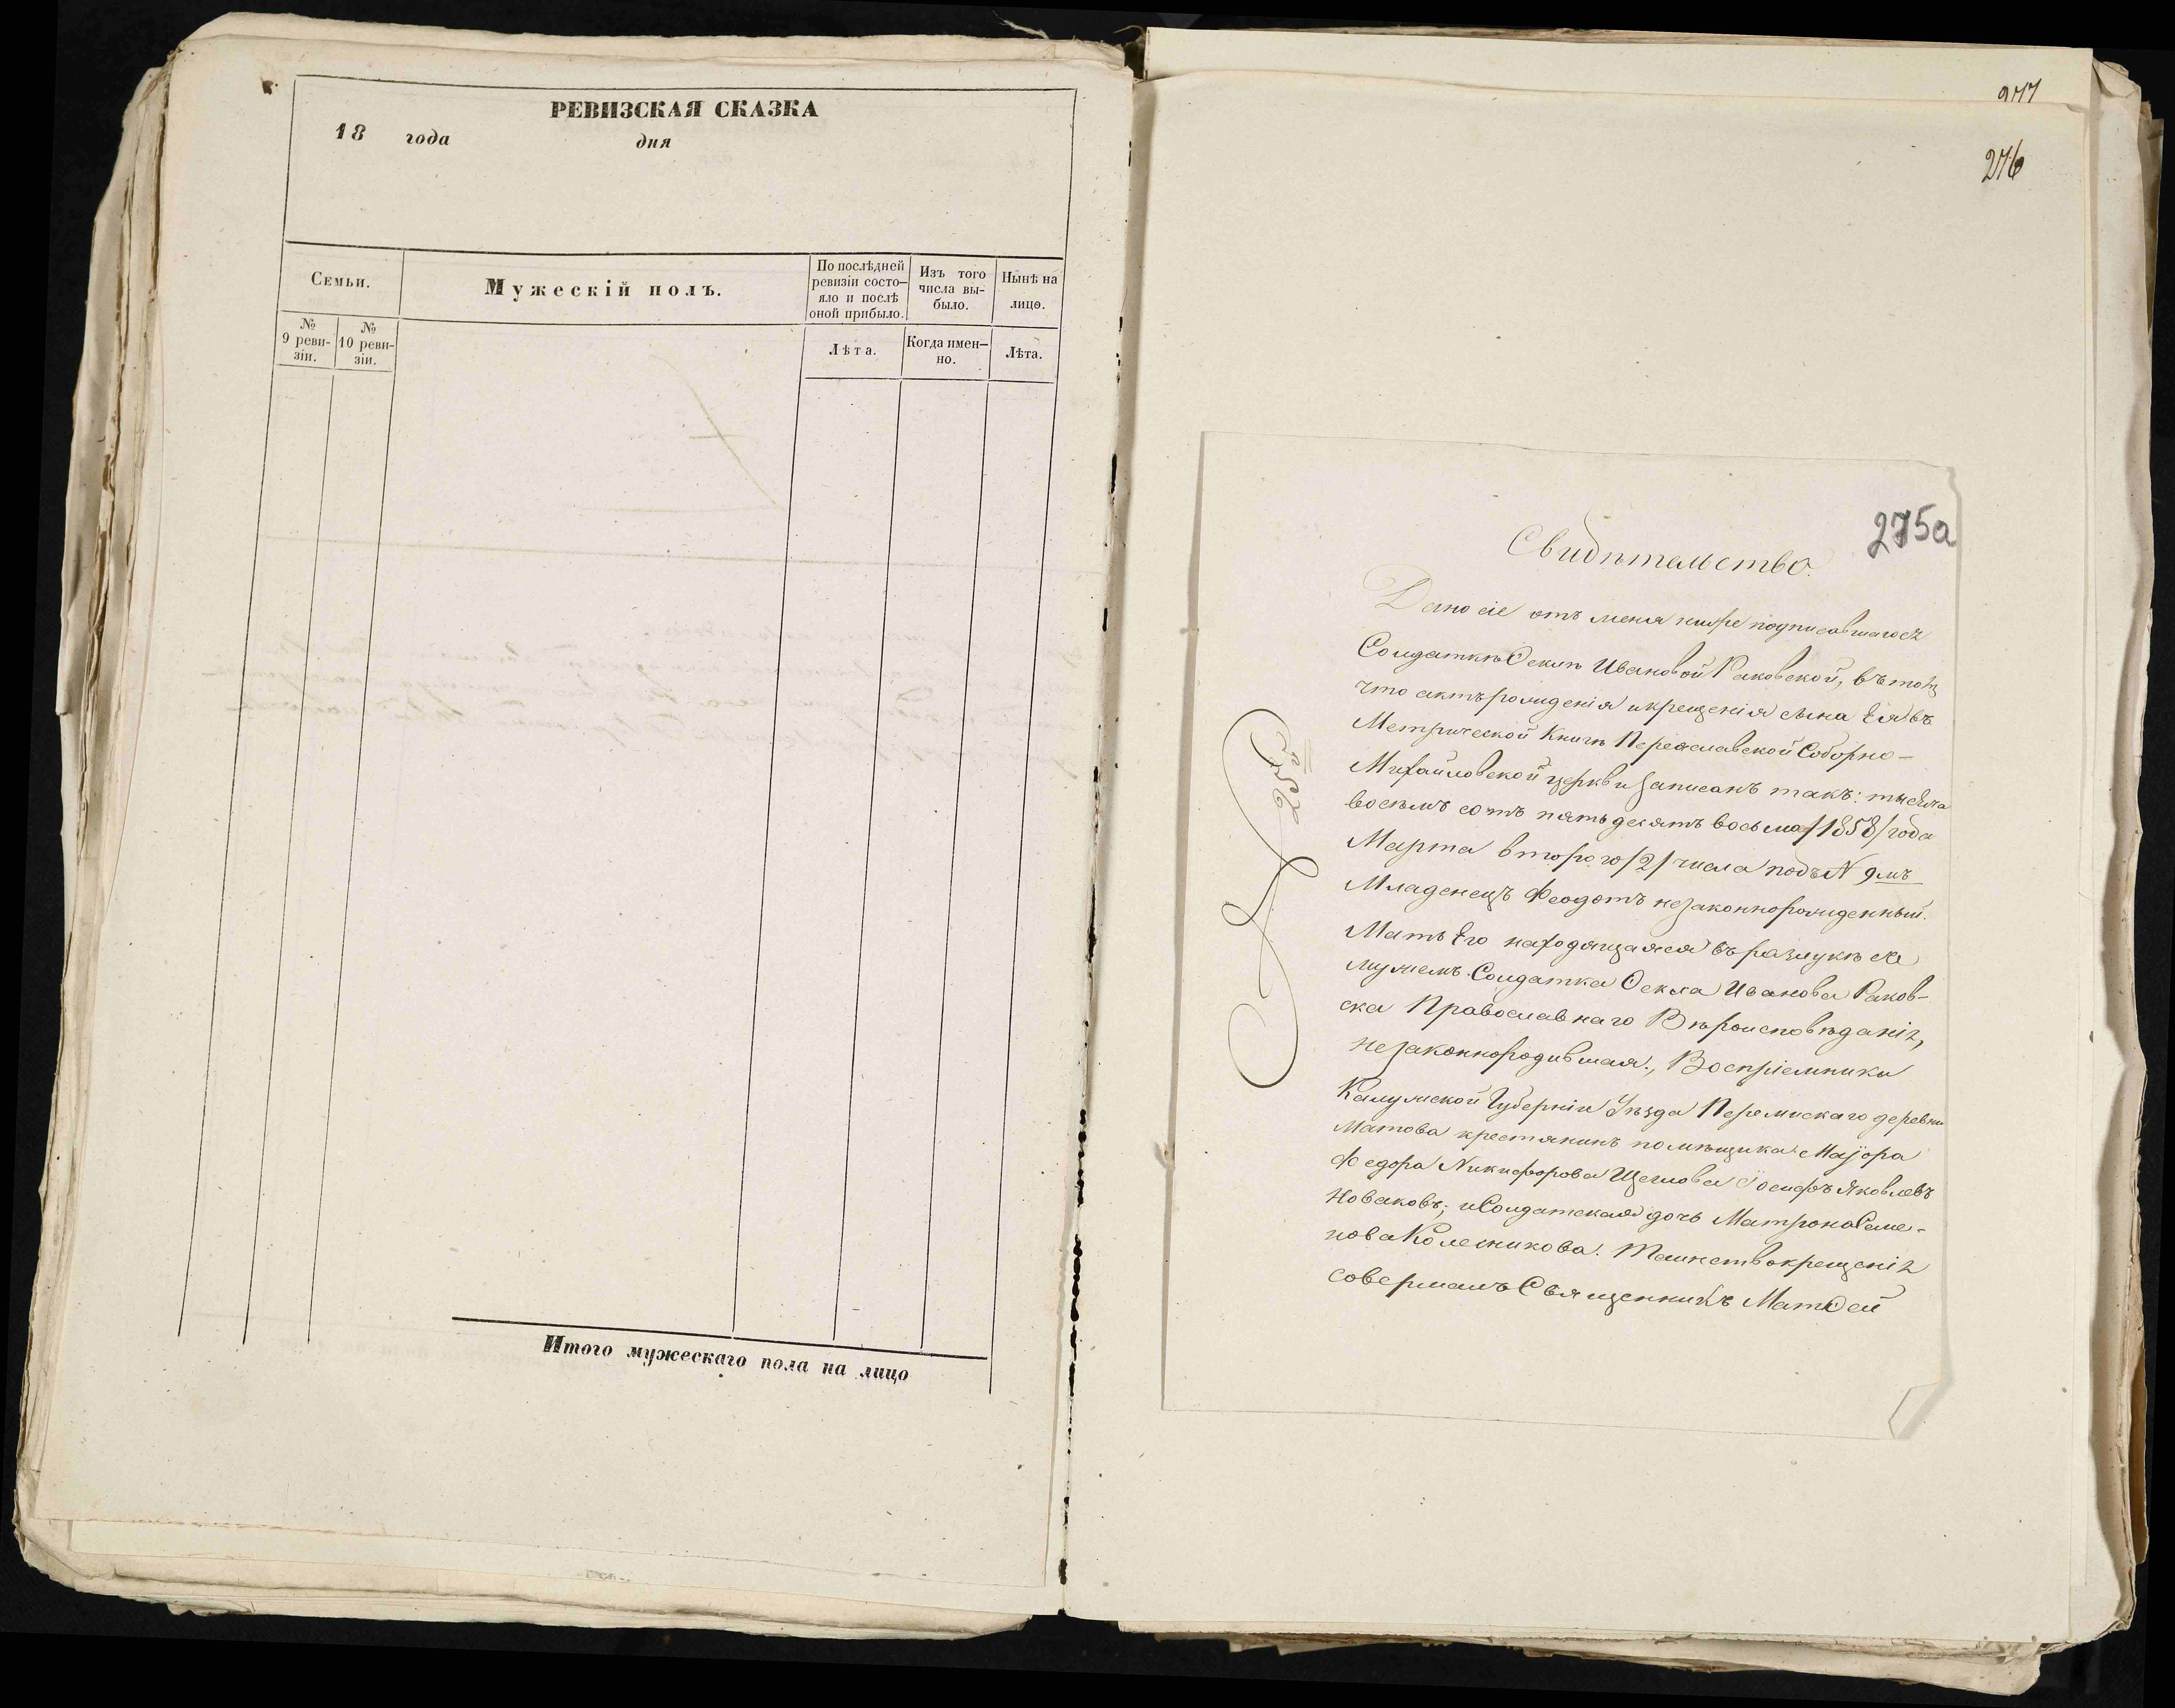 РЕВИЗСКАЯ СКАЗКА
18 года дня
Семьи.
Мужескій полъ.
По послѣдней
ревизіи состо-
яло и послѣ
оной прибыло.
Изъ того
числа вы-
было.
Нынѣ на
лицо.
№
9 реви-
зіи.
№
10 реви-
зіи.
Лѣта.
Когда имен-
но.
Лѣта.
Итого мужескаго пола на лицо
277
276
275а
Свидѣтельство.
Дано сіе отъ меня ниже подписавшагося
Солдаткѣ Ѳеклѣ Ивановой Раковской, въ томъ
что актъ рожденія и крещенія сына Ея въ
Метрической Книгѣ Переяславской Соборно-
Михайловской церкви записанъ такъ: тысяча
восемъ сотъ пятьдесятъ восьмаго /1858/ года
Марта второго /2/ числа подъ N 9мъ
Младенецъ Феодотъ незаконнорожденный.
Мать Его находящаяся въ разлукѣ съ
мужемъ Солдатка Ѳекла Иванова Раков-
ска Православнаго Вѣроисповѣданія,
незаконнородившая., Воспріемники
Калужской Губерніи Уѣзда Перемискаго деревни
Матова крестянинъ помѣщика Маіора
Федора Никифорова Щеглова Іосифъ Яковлевъ
Новаковъ; и Солдатская дочь Матрона Семе-
нова Колесникова. Таинство крещенія
совершалъ Священникъ Матѳей